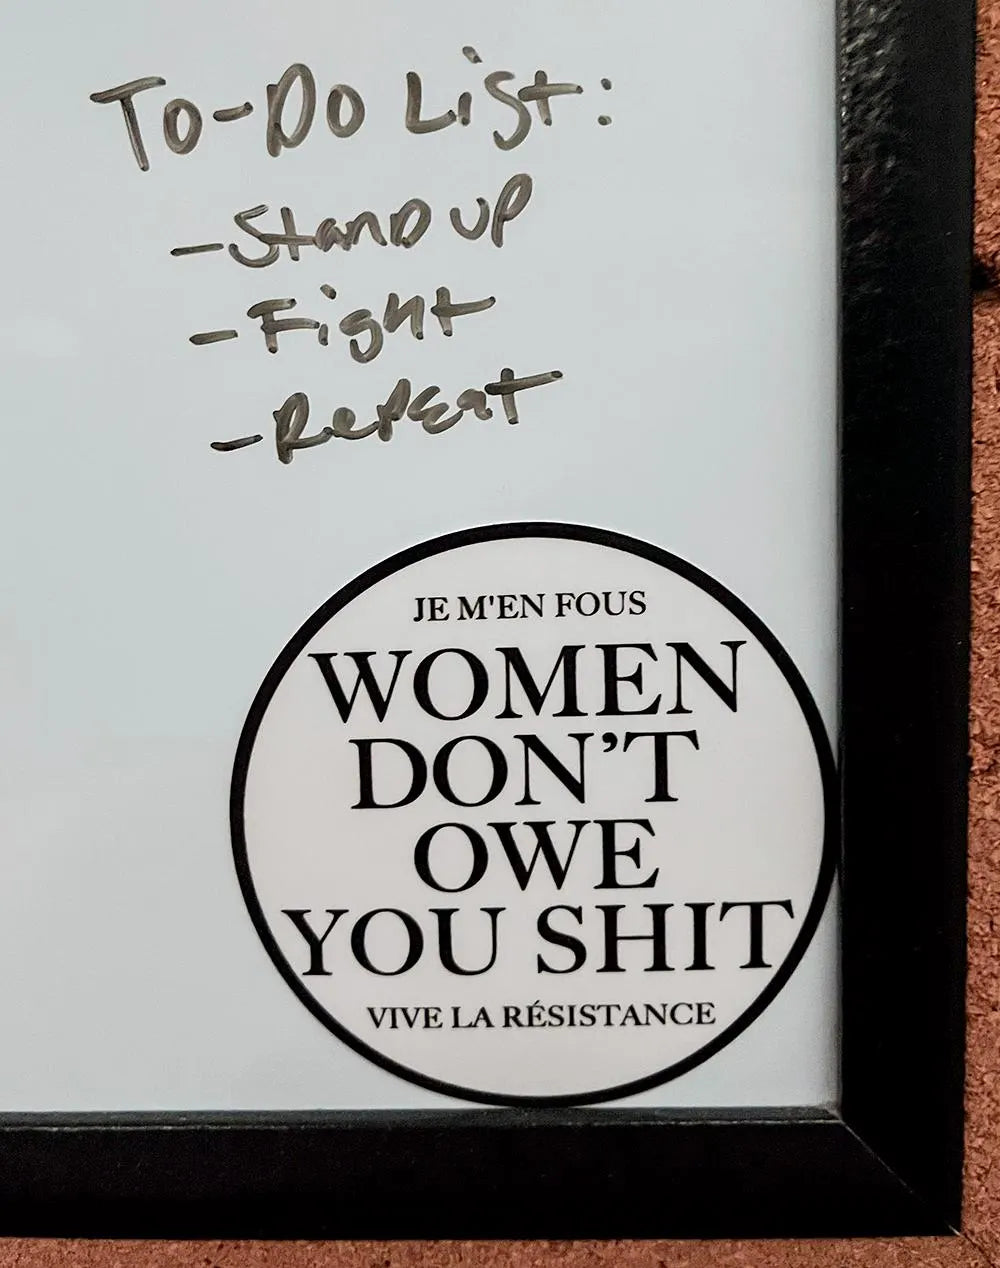 To-Do List:
-Stand up
-Fight
-Repeat
JE M'EN FOUS
WOMEN
DON’T
OWE
YOU SHIT
VIVE LA RÉSISTANCE